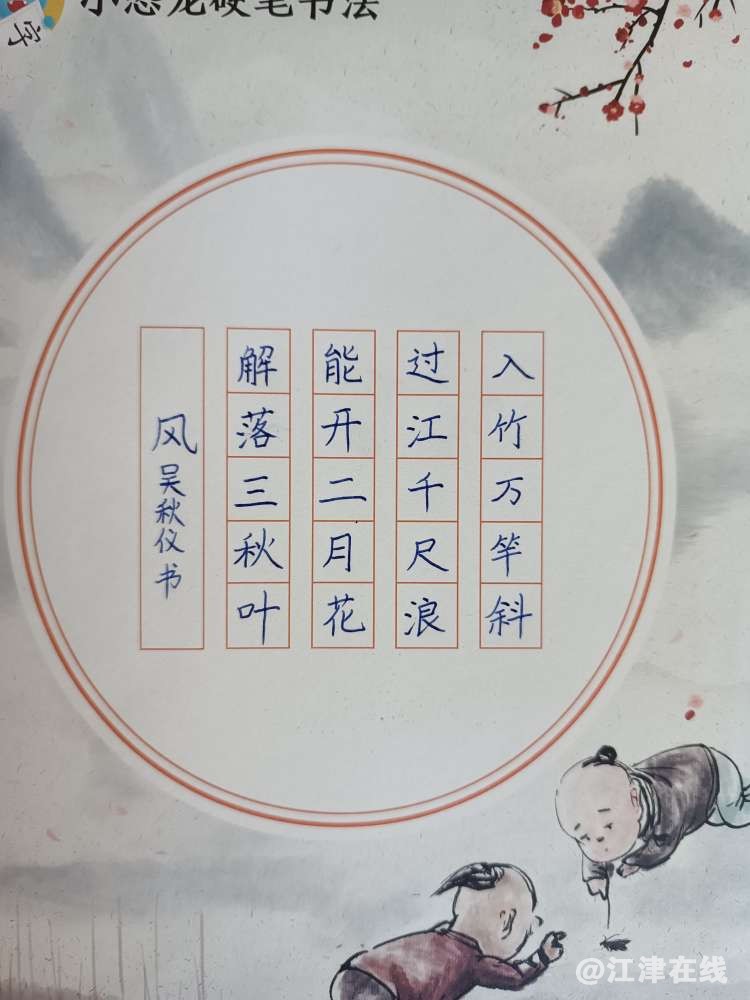 小恐龙硬笔书法
字
解落三秋叶
能开二月花
过江千尺浪
入竹万竿斜
风 吴秋仪书
@江津在线